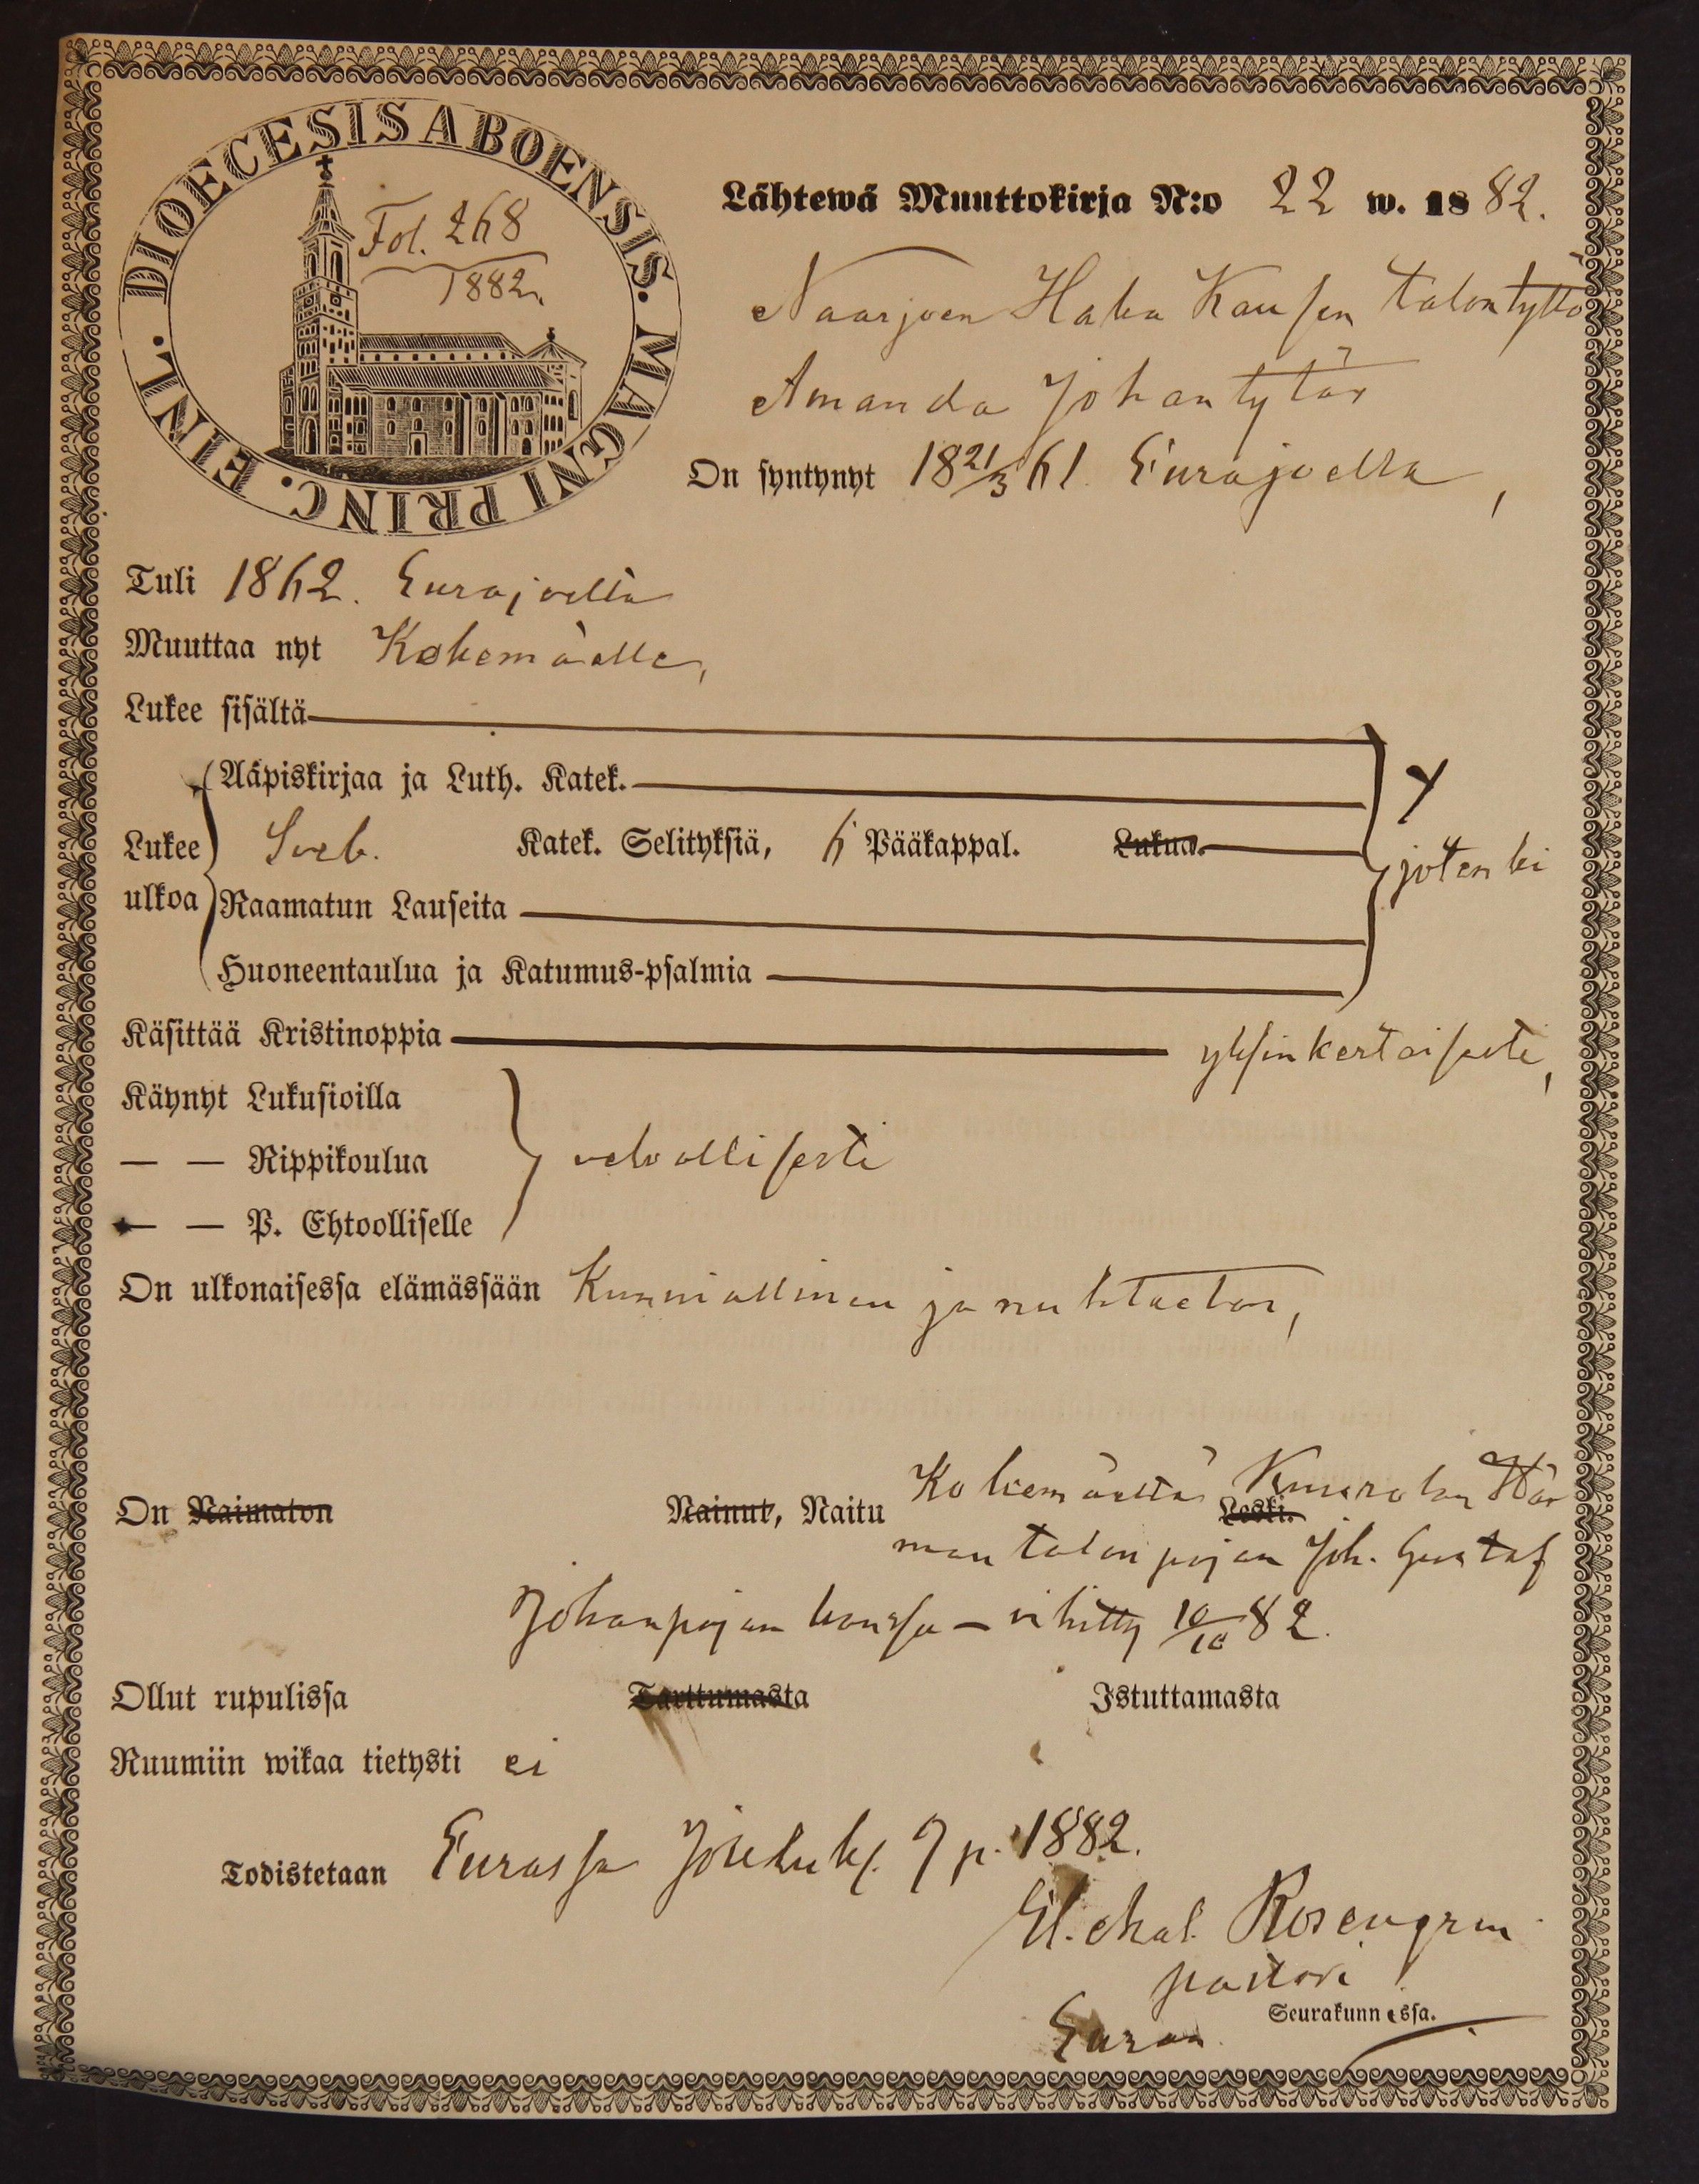 DIOECESIS ABOENSIS. MAGNI PRINC. FINL.
Fol. 268
1882.
Lähtewä Muuttokirja N:o 22 w. 1882.
Naarjoen Haka Kausen talontyttö
Amanda Johantytär
On syntynyt 18 21/3 61. Eurajoella,
Tuli 1862. Eurajoelta
Muuttaa nyt Kokemäelle,
Lukee sisältä
Aäpiskirjaa ja Luth. Katek.
Lukee ulkoa
Sveb. Katek. Selityksiä, 6 Pääkappal. Lukua.
jotenki
Raamatun Lauseita
Huoneentaulua ja Katumus-psalmia
Käsittää Kristinoppia yksinkertaisesti,
Käynyt Lukusioilla
— — Rippikoulua velvollisesti
— — P. Ehtoolliselle
On ulkonaisessa elämässään Kunniallinen ja nuhteeton,
On Naimaton Nainut, Naitu Kokemäeltä Leski.
man talonpojan Joh. Gustaf
Johanpojan kanssa — vihitty 10/10 82.
Ollut rupulissa Tarttumasta Istuttamasta
Ruumiin wikaa tietysti ei
Todistetaan Eurassa Jouluk. 7 p. 1882.
Rosengren
pastori
Euran Seurakunnassa.